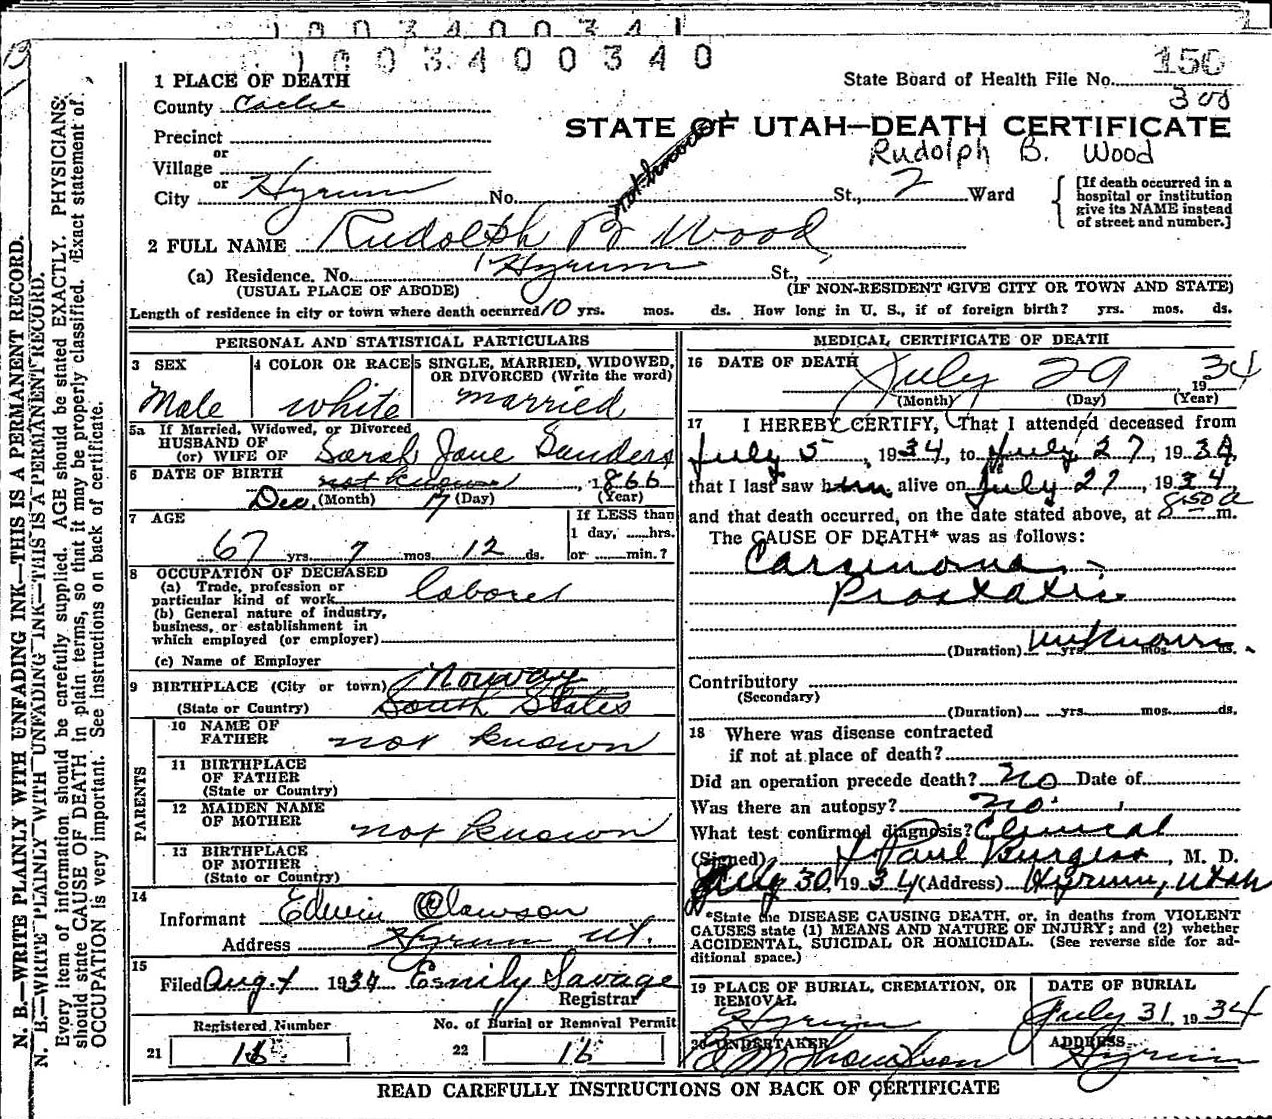 1003400341
1003400340
150
1 PLACE OF DEATH
State Board of Health File No.
300
County Cache
STATE OF UTAH—DEATH CERTIFICATE
Precinct
Rudolph B. Wood
or
Village
or
City Hyrum No. St., 2 Ward
[If death occurred in a hospital or institution give its NAME instead of street and number.]
2 FULL NAME Rudolph B Wood
(a) Residence. No. Hyrum St.,
(USUAL PLACE OF ABODE) (IF NON-RESIDENT GIVE CITY OR TOWN AND STATE)
Length of residence in city or town where death occurred 10 yrs. mos. ds. How long in U. S., if of foreign birth? yrs. mos. ds.
PERSONAL AND STATISTICAL PARTICULARS
3 SEX
Male
4 COLOR OR RACE
white
5 SINGLE, MARRIED, WIDOWED,
OR DIVORCED (Write the word)
married
5a If Married, Widowed, or Divorced
HUSBAND OF
(or) WIFE OF Sarah Jane Sanders
6 DATE OF BIRTH not known, 1866
Dec. (Month) 17 (Day) (Year)
7 AGE
67 yrs. 7 mos. 12 ds.
If LESS than
1 day, hrs.
or min.?
8 OCCUPATION OF DECEASED
(a) Trade, profession or
particular kind of work laborer
(b) General nature of industry,
business, or establishment in
which employed (or employer)
(c) Name of Employer
9 BIRTHPLACE (City or town) Norway
(State or Country) South States
PARENTS
10 NAME OF
FATHER not known
11 BIRTHPLACE
OF FATHER
(State or Country)
12 MAIDEN NAME
OF MOTHER not known
13 BIRTHPLACE
OF MOTHER
(State or Country)
14
Informant Edwin Clawson
Address Hyrum Ut.
15
Filed Aug. 1 1934 Emily Savage
Registrar
Registered Number No. of Burial or Removal Permit
21 16 22 16
MEDICAL CERTIFICATE OF DEATH
16 DATE OF DEATH July 29, 1934
(Month) (Day) (Year)
17 I HEREBY CERTIFY, That I attended deceased from
July 5, 1934, to July 27, 1934,
that I last saw him alive on July 27, 1934
and that death occurred, on the date stated above, at 8:50 a m.
The CAUSE OF DEATH* was as follows:
Carcinoma -
Prostatic
(Duration) unknown yrs. mos. ds.
Contributory
(Secondary)
(Duration) yrs. mos. ds.
18 Where was disease contracted
if not at place of death?
Did an operation precede death? no Date of
Was there an autopsy? no.
What test confirmed diagnosis? Clinical
(Signed) Paul Burgess, M. D.
July 30, 1934 (Address) Hyrum, Utah
*State the DISEASE CAUSING DEATH, or, in deaths from VIOLENT
CAUSES state (1) MEANS AND NATURE OF INJURY; and (2) whether
ACCIDENTAL, SUICIDAL OR HOMICIDAL. (See reverse side for ad-
ditional space.)
19 PLACE OF BURIAL, CREMATION, OR
REMOVAL
Hyrum
DATE OF BURIAL
July 31, 1934
20 UNDERTAKER
Thompson
ADDRESS
Hyrum
READ CAREFULLY INSTRUCTIONS ON BACK OF CERTIFICATE
N. B.—WRITE PLAINLY WITH UNFADING INK—THIS IS A PERMANENT RECORD.
N. B.—WRITE PLAINLY WITH UNFADING INK—THIS IS A PERMANENT RECORD.
Every item of information should be carefully supplied. AGE should be stated EXACTLY. PHYSICIANS
should state CAUSE OF DEATH in plain terms, so that it may be properly classified. Exact statement of
OCCUPATION is very important. See instructions on back of certificate.